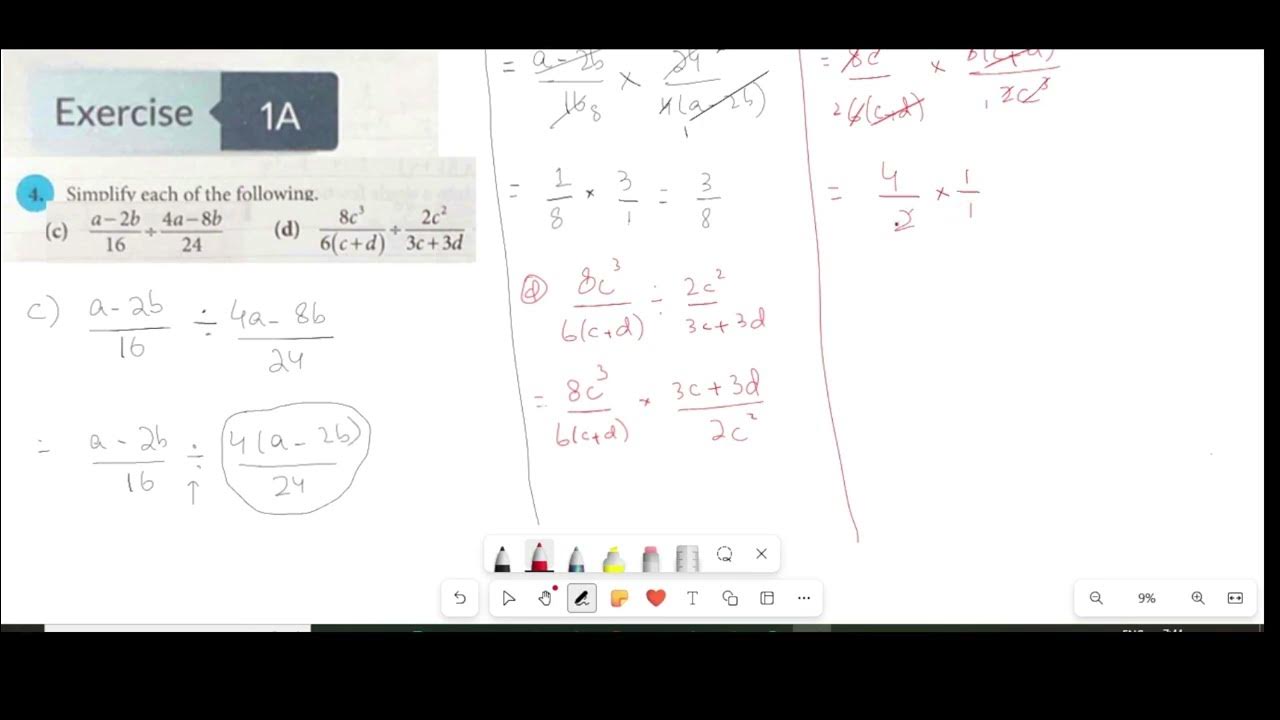 Exercise 1A
4. Simplify each of the following.
(c) (a-2b)/16 ÷ (4a-8b)/24 (d) 8c³/6(c+d) ÷ 2c²/(3c+3d)
c) (a-2b)/16 ÷ (4a-8b)/24
= (a-2b)/16 ÷ 4(a-2b)/24
↑
= (a-2b)/16 8 × 24/4(a-2b)
1
= 1/8 × 3/1 = 3/8
(d) 8c³/6(c+d) ÷ 2c²/(3c+3d)
= 8c³/6(c+d) × (3c+3d)/2c²
= 4/2 × 1/1
T
9%